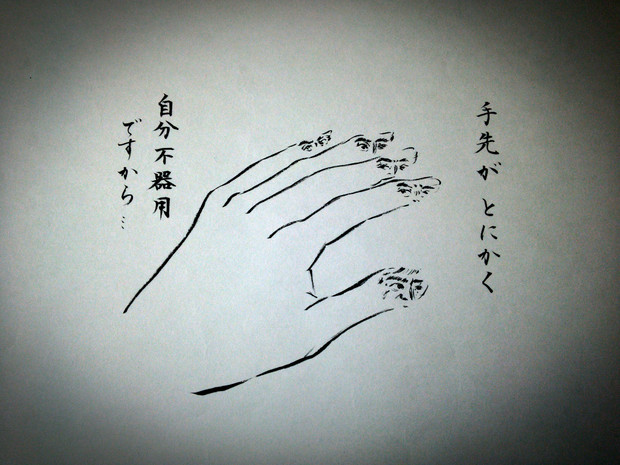 手先が とにかく
自分不器用
ですから…